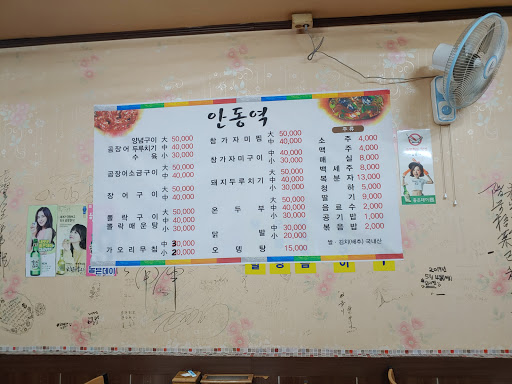 안동역
양념구이 大 50,000
곰장어 두루치기 中 40,000
수육 小 30,000
곰장어소금구이 大 50,000
中 40,000
장어구이 大 50,000
中 40,000
小 30,000
뽈락구이 大 50,000
뽈락매운탕 中 40,000
小 30,000
가오리무침 中 30,000
小 20,000
참가자미찜 大 50,000
中 40,000
참가자미구이 大 50,000
中 40,000
小 30,000
돼지두루치기 大 50,000
中 40,000
小 30,000
온두부 中 40,000
小 30,000
닭발 中 30,000
小 20,000
오뎅탕 15,000
주류
소주 4,000
맥주 4,000
매실 8,000
백세주 8,000
복분자 13,000
청하 5,000
딸기 9,000
음료수 2,000
공기밥 1,000
볶음밥 2,000
쌀·김치(배추) 국내산
좋은데이